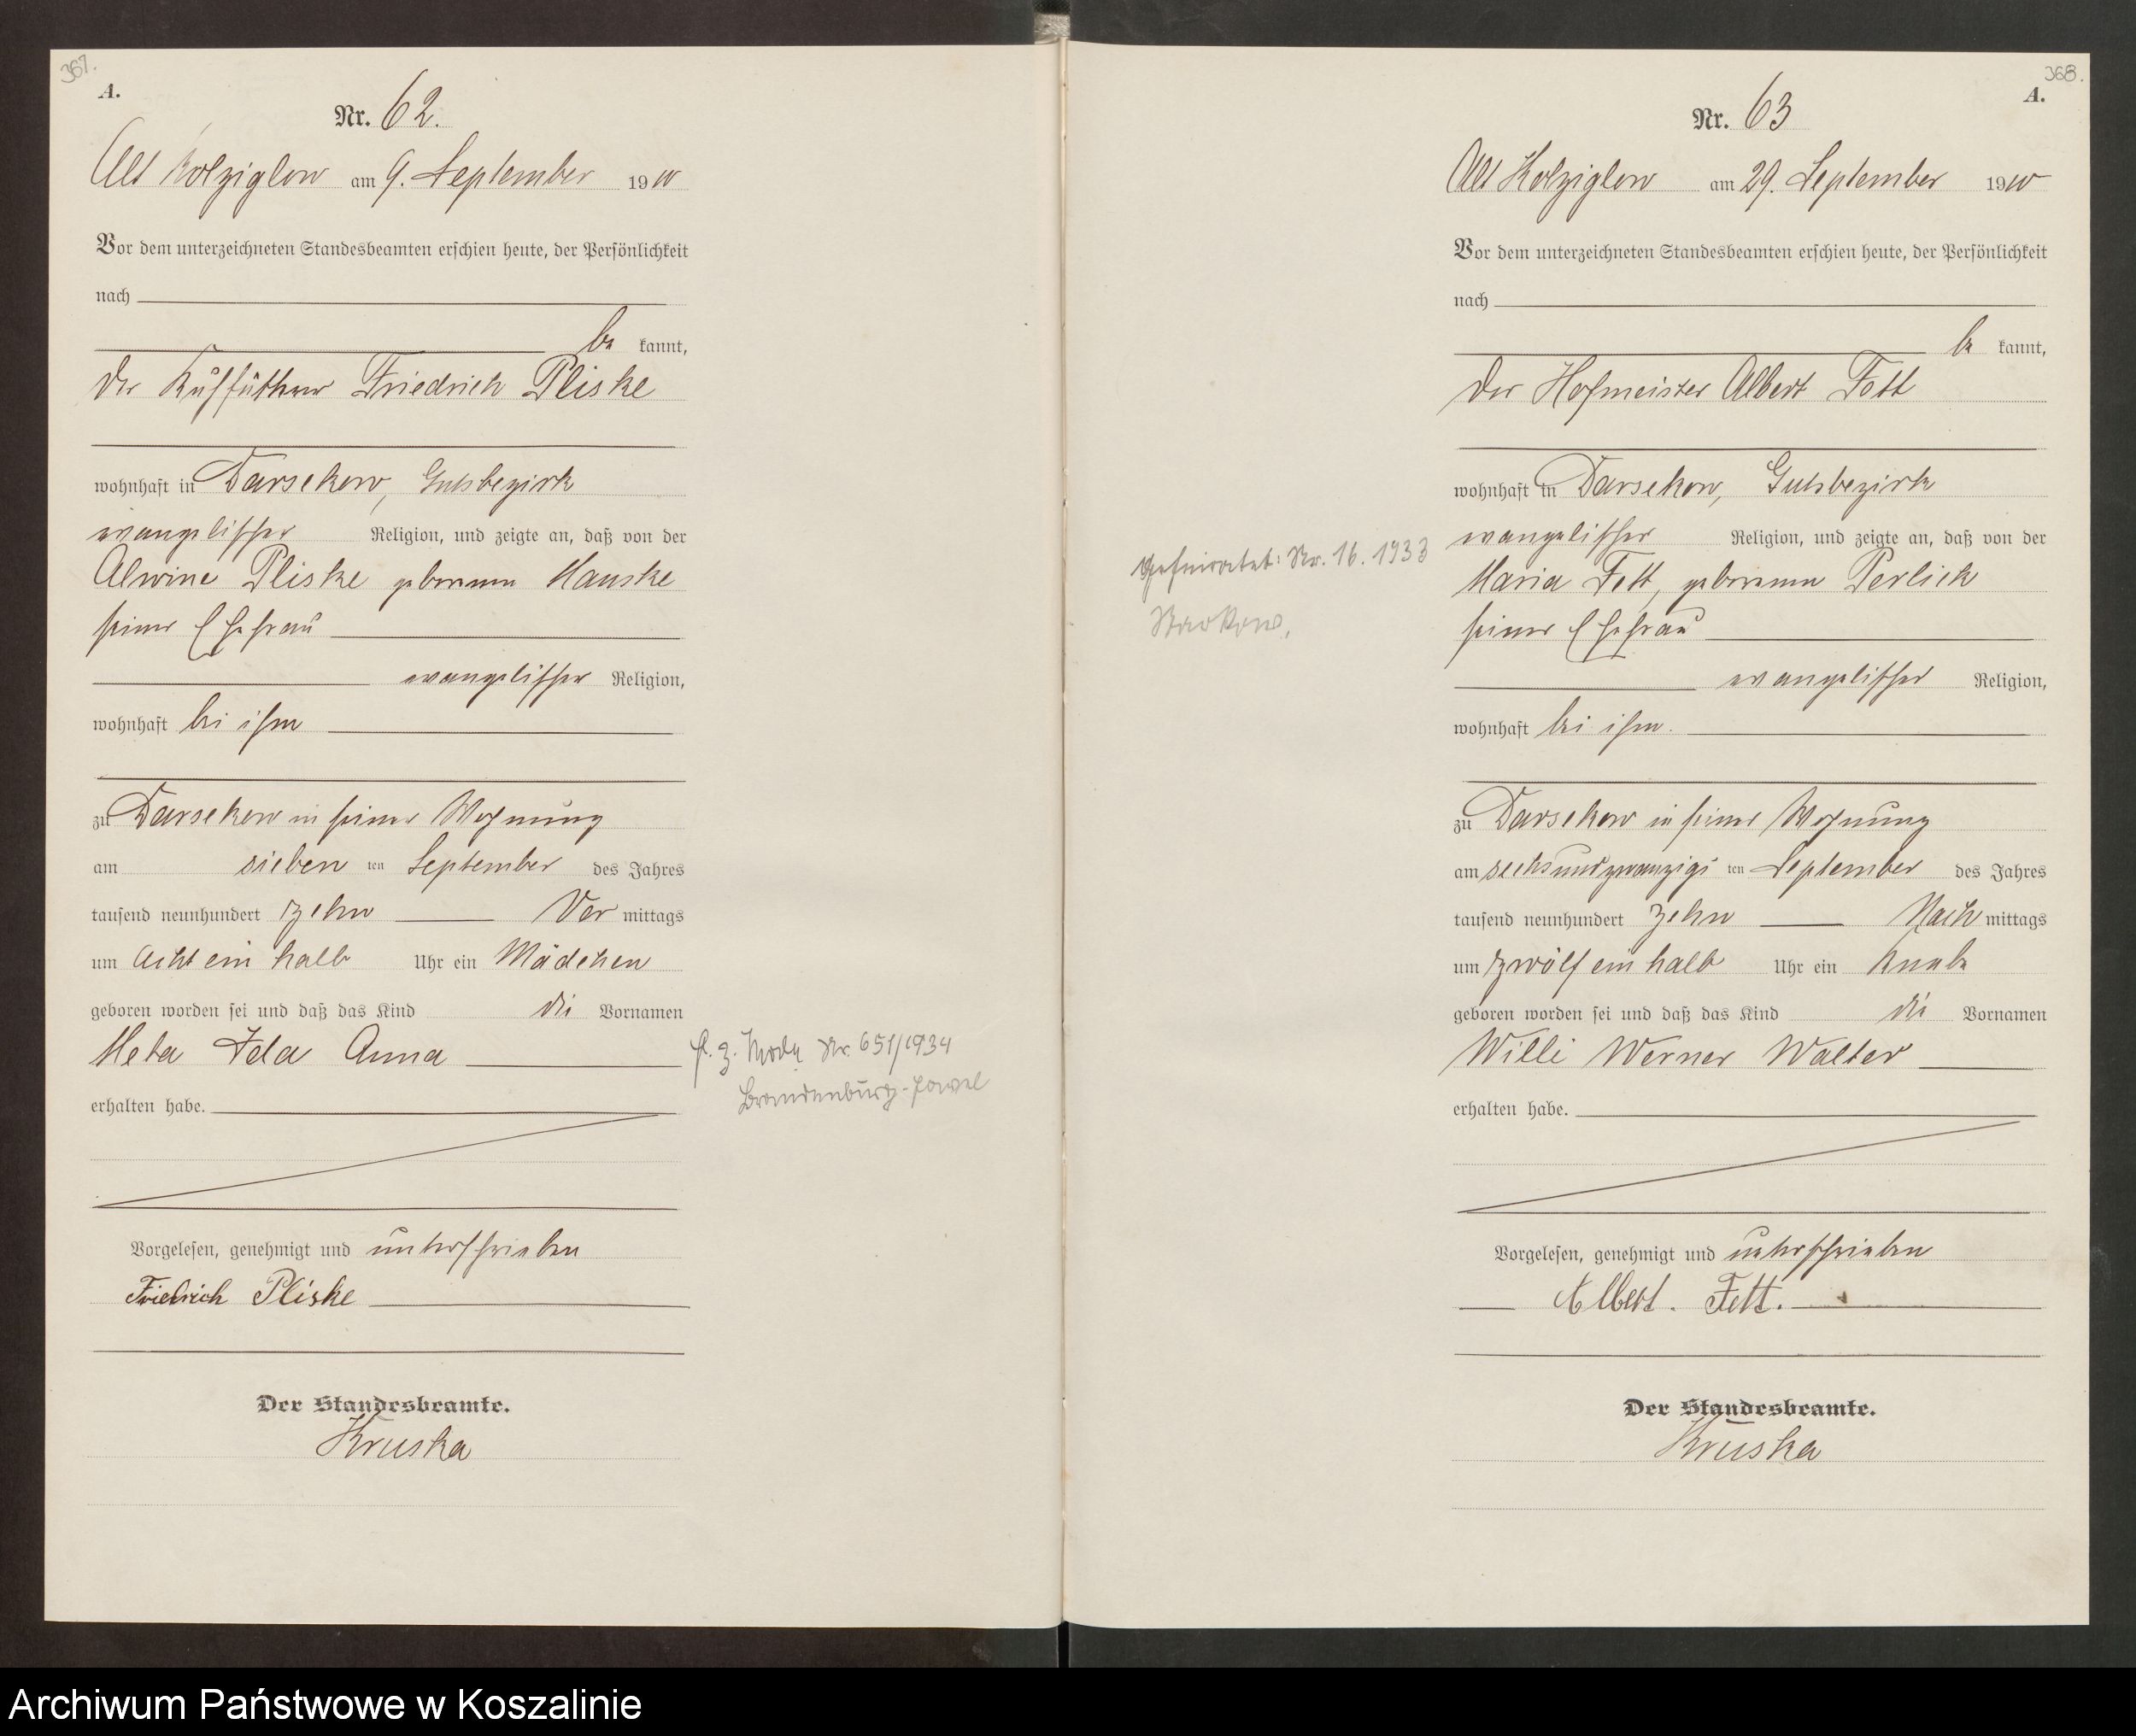 367.
A.
Nr. 62.
Alt Kolziglow am 9. September 1910
Vor dem unterzeichneten Standesbeamten erschien heute, der Persönlichkeit
nach
be kannt,
der Kuhfütterer Friedrich Pliske
wohnhaft in Darsekow, Gutsbezirk
evangelischer Religion, und zeigte an, daß von der
Alwine Pliske geborenen Manske
seiner Ehefrau
evangelischer Religion,
wohnhaft bei ihm
zu Darsekow in seiner Wohnung
am sieben ten September des Jahres
tausend neunhundert zehn Vor mittags
um acht ein halb Uhr ein Mädchen
geboren worden sei und daß das Kind die Vornamen
Meta Ida Anna
erhalten habe.
Nr. 651/1934
Brandenburg-Havel
Vorgelesen, genehmigt und unterschrieben
Friedrich Pliske
Der Standesbeamte.
Kruska
368.
A.
Nr. 63
Alt Kolziglow am 29. September 1910
Vor dem unterzeichneten Standesbeamten erschien heute, der Persönlichkeit
nach
be kannt,
der Hofmeister Albert Fett
wohnhaft in Darsekow, Gutsbezirk
evangelischer Religion, und zeigte an, daß von der
Maria Fett, geborenen Perlick
seiner Ehefrau
evangelischer Religion,
wohnhaft bei ihm.
zu Darsekow in seiner Wohnung
am sechsundzwanzigs ten September des Jahres
tausend neunhundert zehn Nach mittags
um zwölf ein halb Uhr ein Knabe
geboren worden sei und daß das Kind die Vornamen
Willi Werner Walter
erhalten habe.
Geheiratet: Nr. 16. 1933
Vorgelesen, genehmigt und unterschrieben
Albert. Fett.
Der Standesbeamte.
Kruska
Archiwum Państwowe w Koszalinie